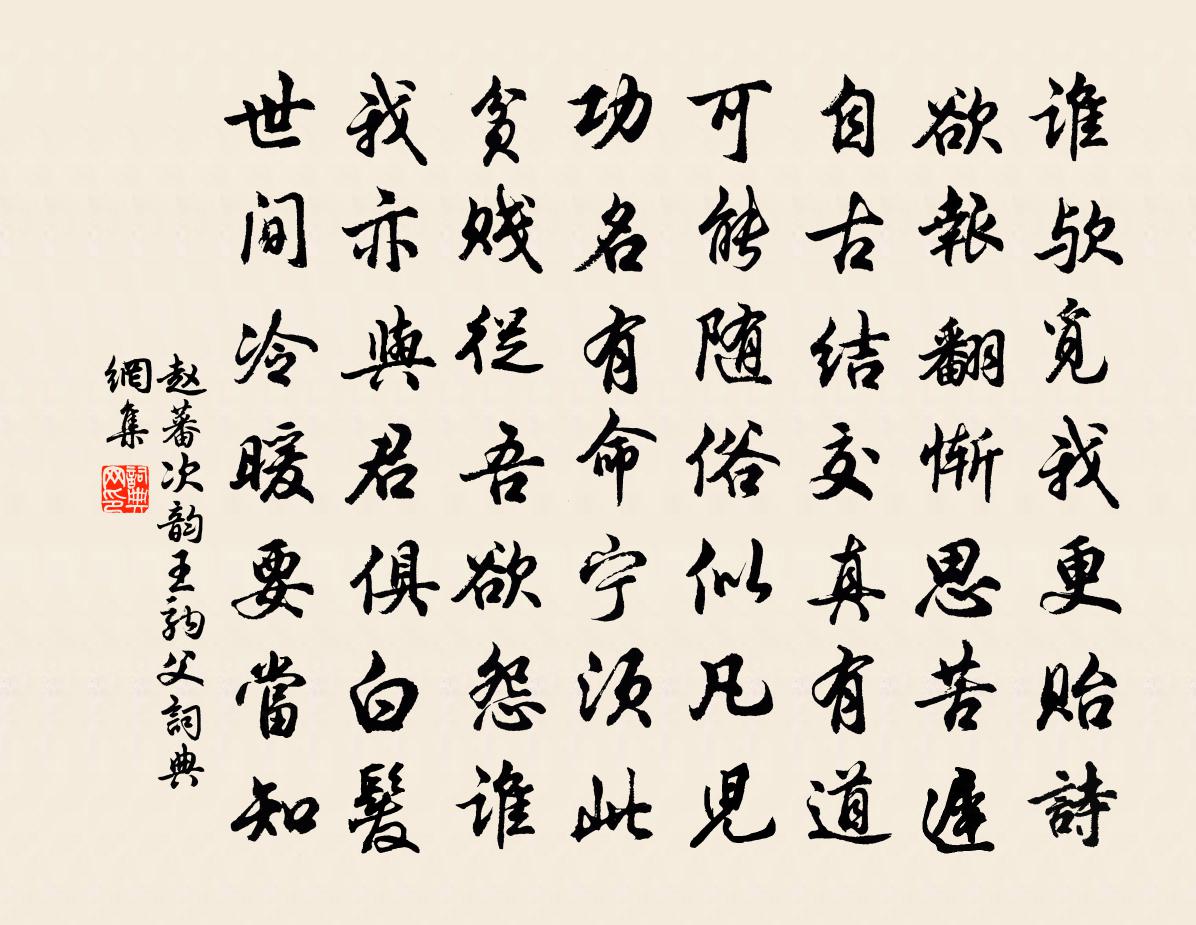 谁欤觅我更贻詩
欲報翻惭思苦遲
自古结交真有道
可能随俗似凡児
功名有命宁须此
贫贱從吾欲怨谁
我亦與君俱白髮
世间冷暖要當知
赵蕃次韵王驹父詞典
網集
詞典
网印